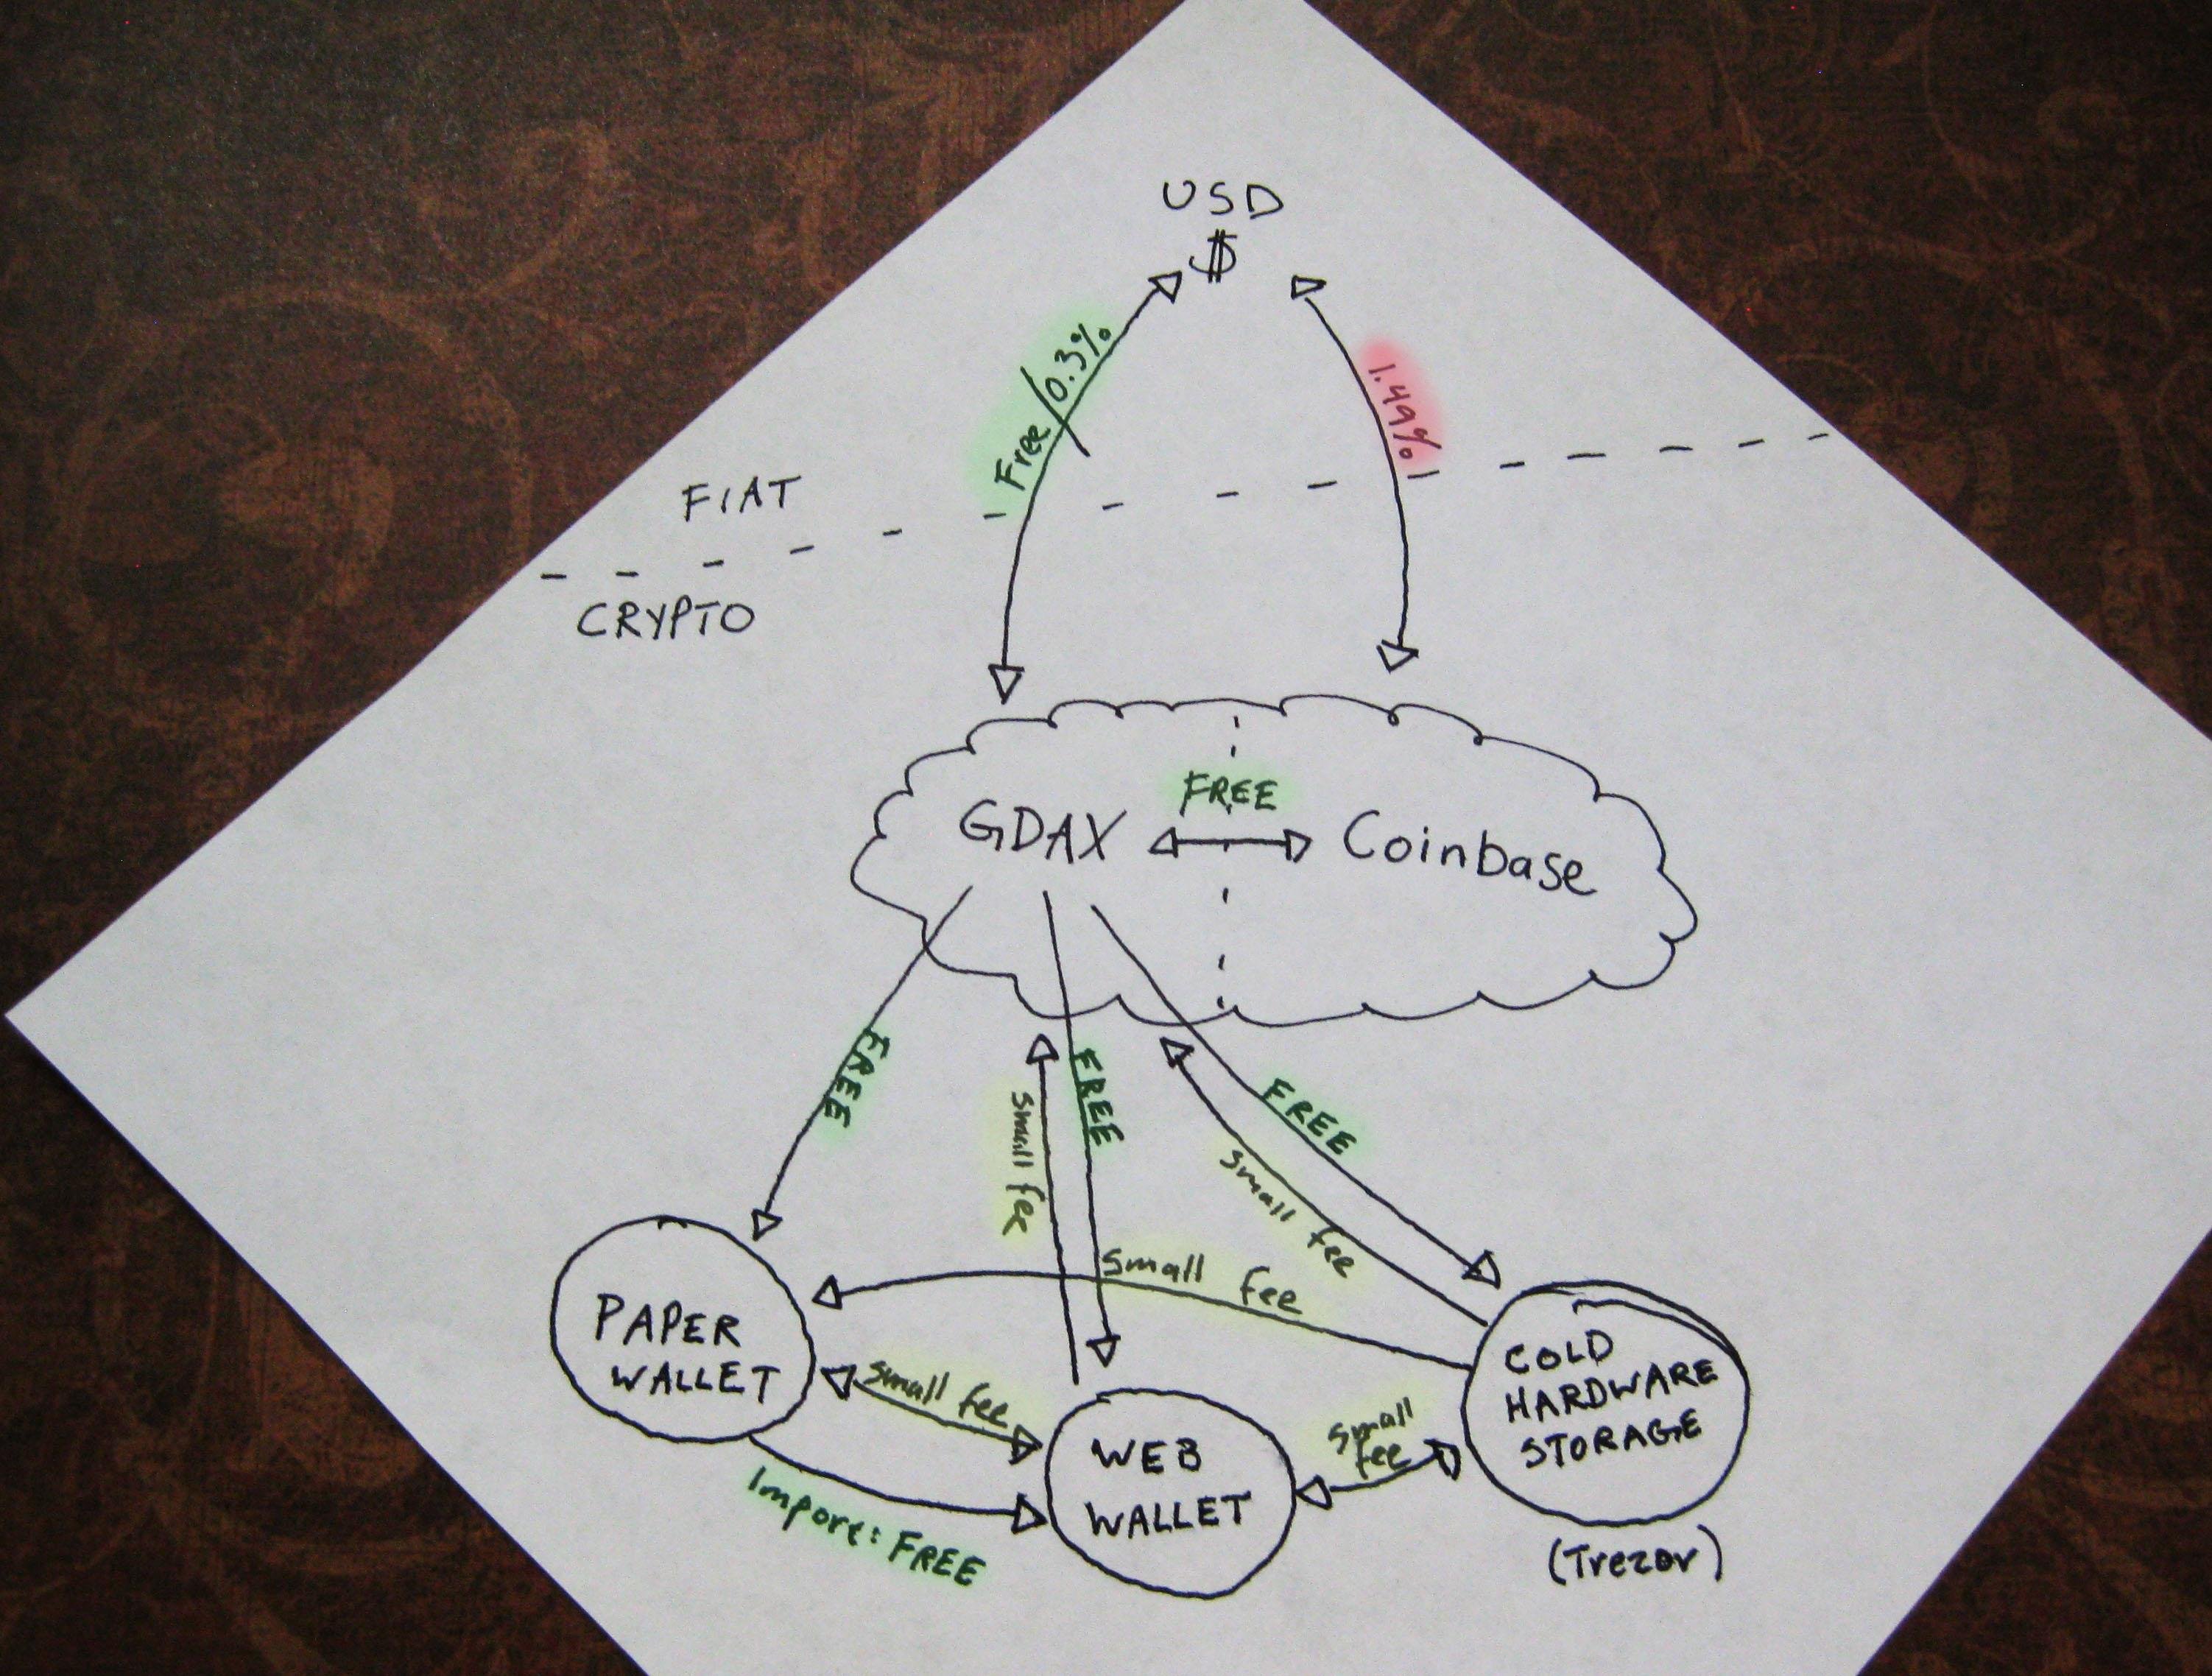 USD
$
Free/0.3%
1.49%
FIAT
CRYPTO
FREE
GDAX
Coinbase
FREE
small fee
FREE
FREE
small fee
small fee
PAPER
WALLET
small fee
WEB
WALLET
small
fee
COLD
HARDWARE
STORAGE
(Trezor)
Import: FREE